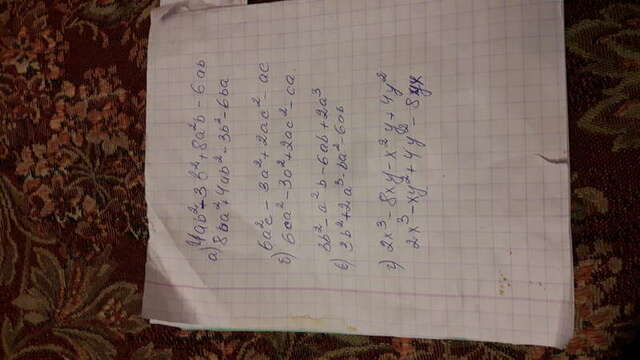 а) 4ab² - 3b² + 8a²b - 6ab
8ba² + 4ab² - 3b² - 6ba
б) 6a²c - 3a² + 2ac² - ac
6ca² - 3a² + 2ac² - ca
в) 3b² - a²b - 6ab + 2a³
3b² + 2a³ - ba² - 6ab
г) 2x³ - 8xy - x²y + 4y²
2x³ - xy² + 4y² - 8yx